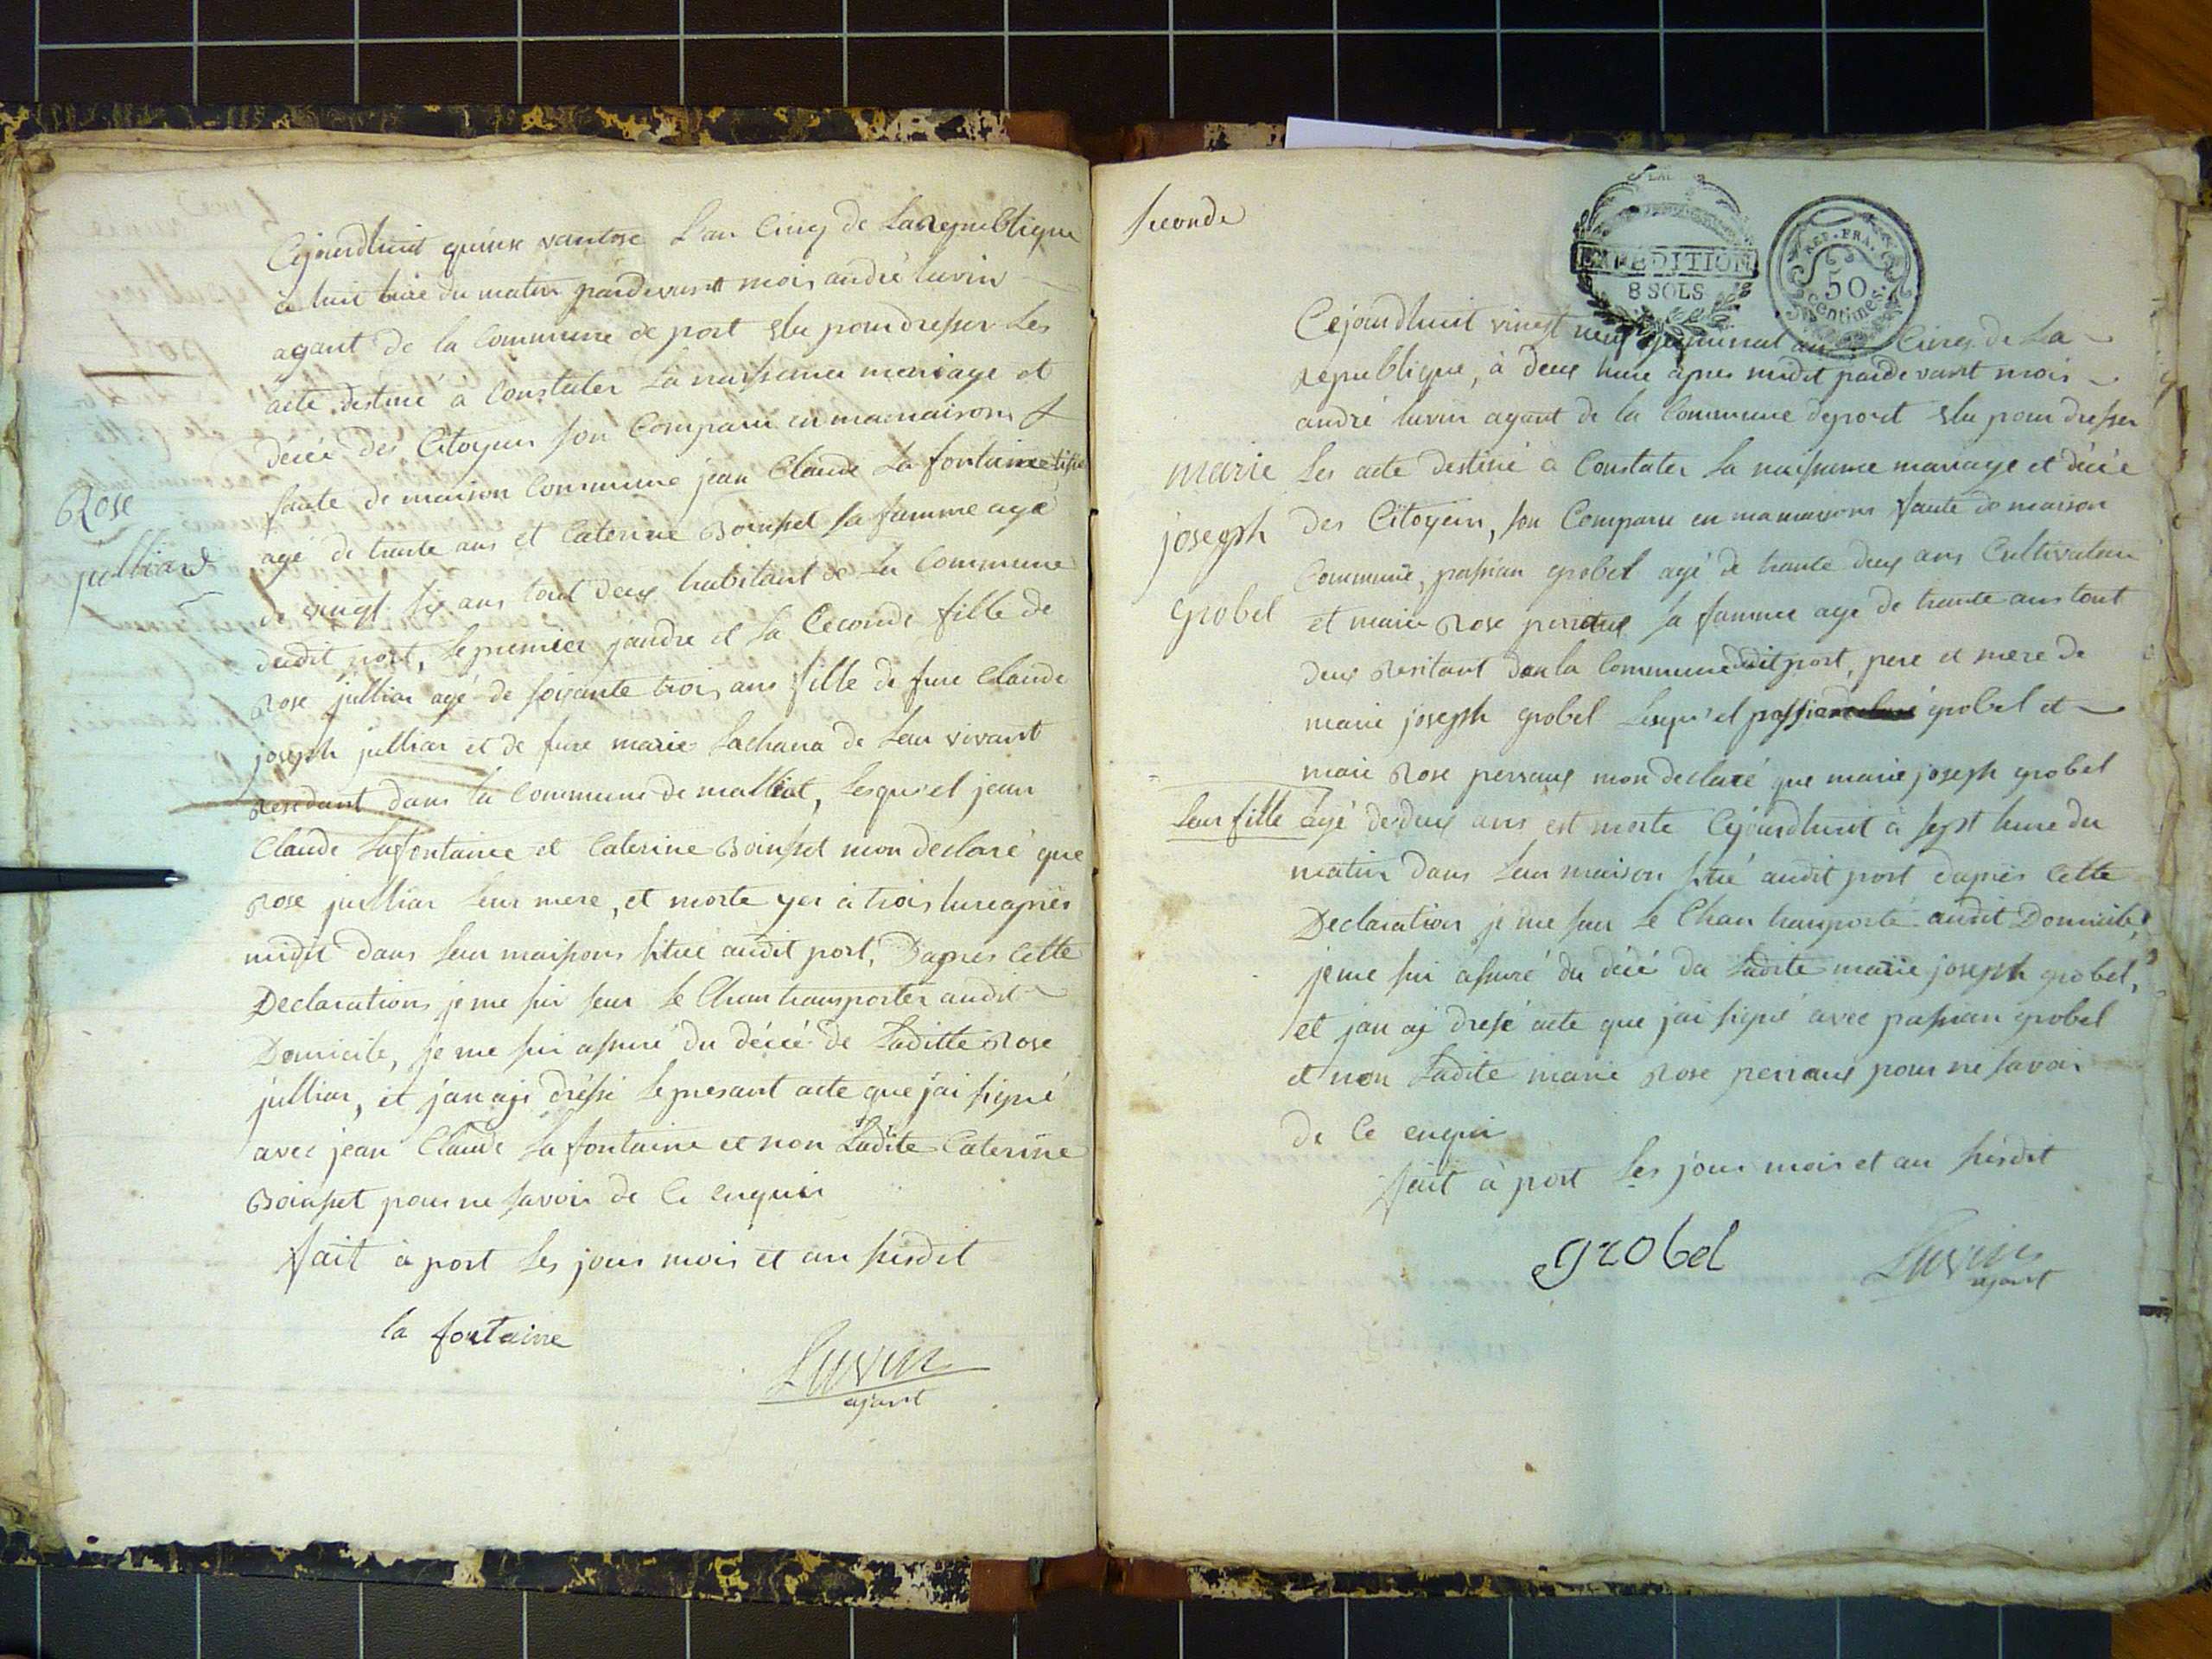 Cejourdhuit quinze vantose L'an Cinq de La Republique
à huit hure du matin pardevant moi, andré luvin
agant de la Commune de port Elu pour dresser Les
acte destiné à Constater La naissance mariage et
décée des Citoyen son Comparu en ma maisons
faute de maison Commune jean Claude La fontaine
agé de trante ans et Caterine Boinset sa famme agé
de vingt six ans tout deux habitant de La Commune
dudit port, Le premier jandre et La Ceconde fille de
Rose jullian agé de soixante trois ans fille de fure Claude
joseph jullian et de fure marie Lachana de Leur vivant
Residant dans la Commune de malliat, Lesqu'el jean
Claude Lafontaine et Caterine Boinset mon declaré que
Rose jullian Leur mere, et morte yer à trois hure après
midit dans Leur maisons situé audit port, Dapres Cette
Declarations je me sui sur Le Chan transporter audit
Domicile, je me sui assuré du décée de Laditte Rose
jullian, et janaji dréssé Le presant acte que j'ai signé
avec jean Claude La fontaine et non Ladite Caterine
Boinset pour ne savoir de Ce enquis
fait à port Les jour mois et an susdit
la fontaine
Luvin
ajant
Rose
julliard
Seconde
EXPEDITION
8 SOLS
REP. FRA.
50
centimes.
Cejourdhuit vingt neuf germinal an Cinq de La
Republique, à deux hure apres midit pardevant moi
andré luvin agant de la Commune de port Elu pour dresser
Les acte destiné à Constater La naissance mariage et décée
des Citoyen, son Comparu en ma maisons faute de maison
Commune, passian grobel agé de trante deux ans Cultivateur
et marie Rose perraux sa famme agé de trante ans tout
deux Resitant dan la Commune dudit port, pere et mere de
marie joseph grobel Lesqu'el passian grobel et
marie Rose perraux mon declaré que marie joseph grobel
Leur fille agé de deux ans est morte Cejourdhuit à sept hure du
matin dans Leur maison situé audit port dapriès Cette
Declaration je me suis Le Chan transporté audit Domicile,
je me sui assuré du décé da Ladite marie joseph grobel,
et jan aj dresé acte que jai signé avec passian grobel
et non Ladite marie Rose perraux pour ne savoir
de Ce enquis
fait à port Les jour mois et an susdit
grobel
Luvin
ajant
marie
joseph
grobel